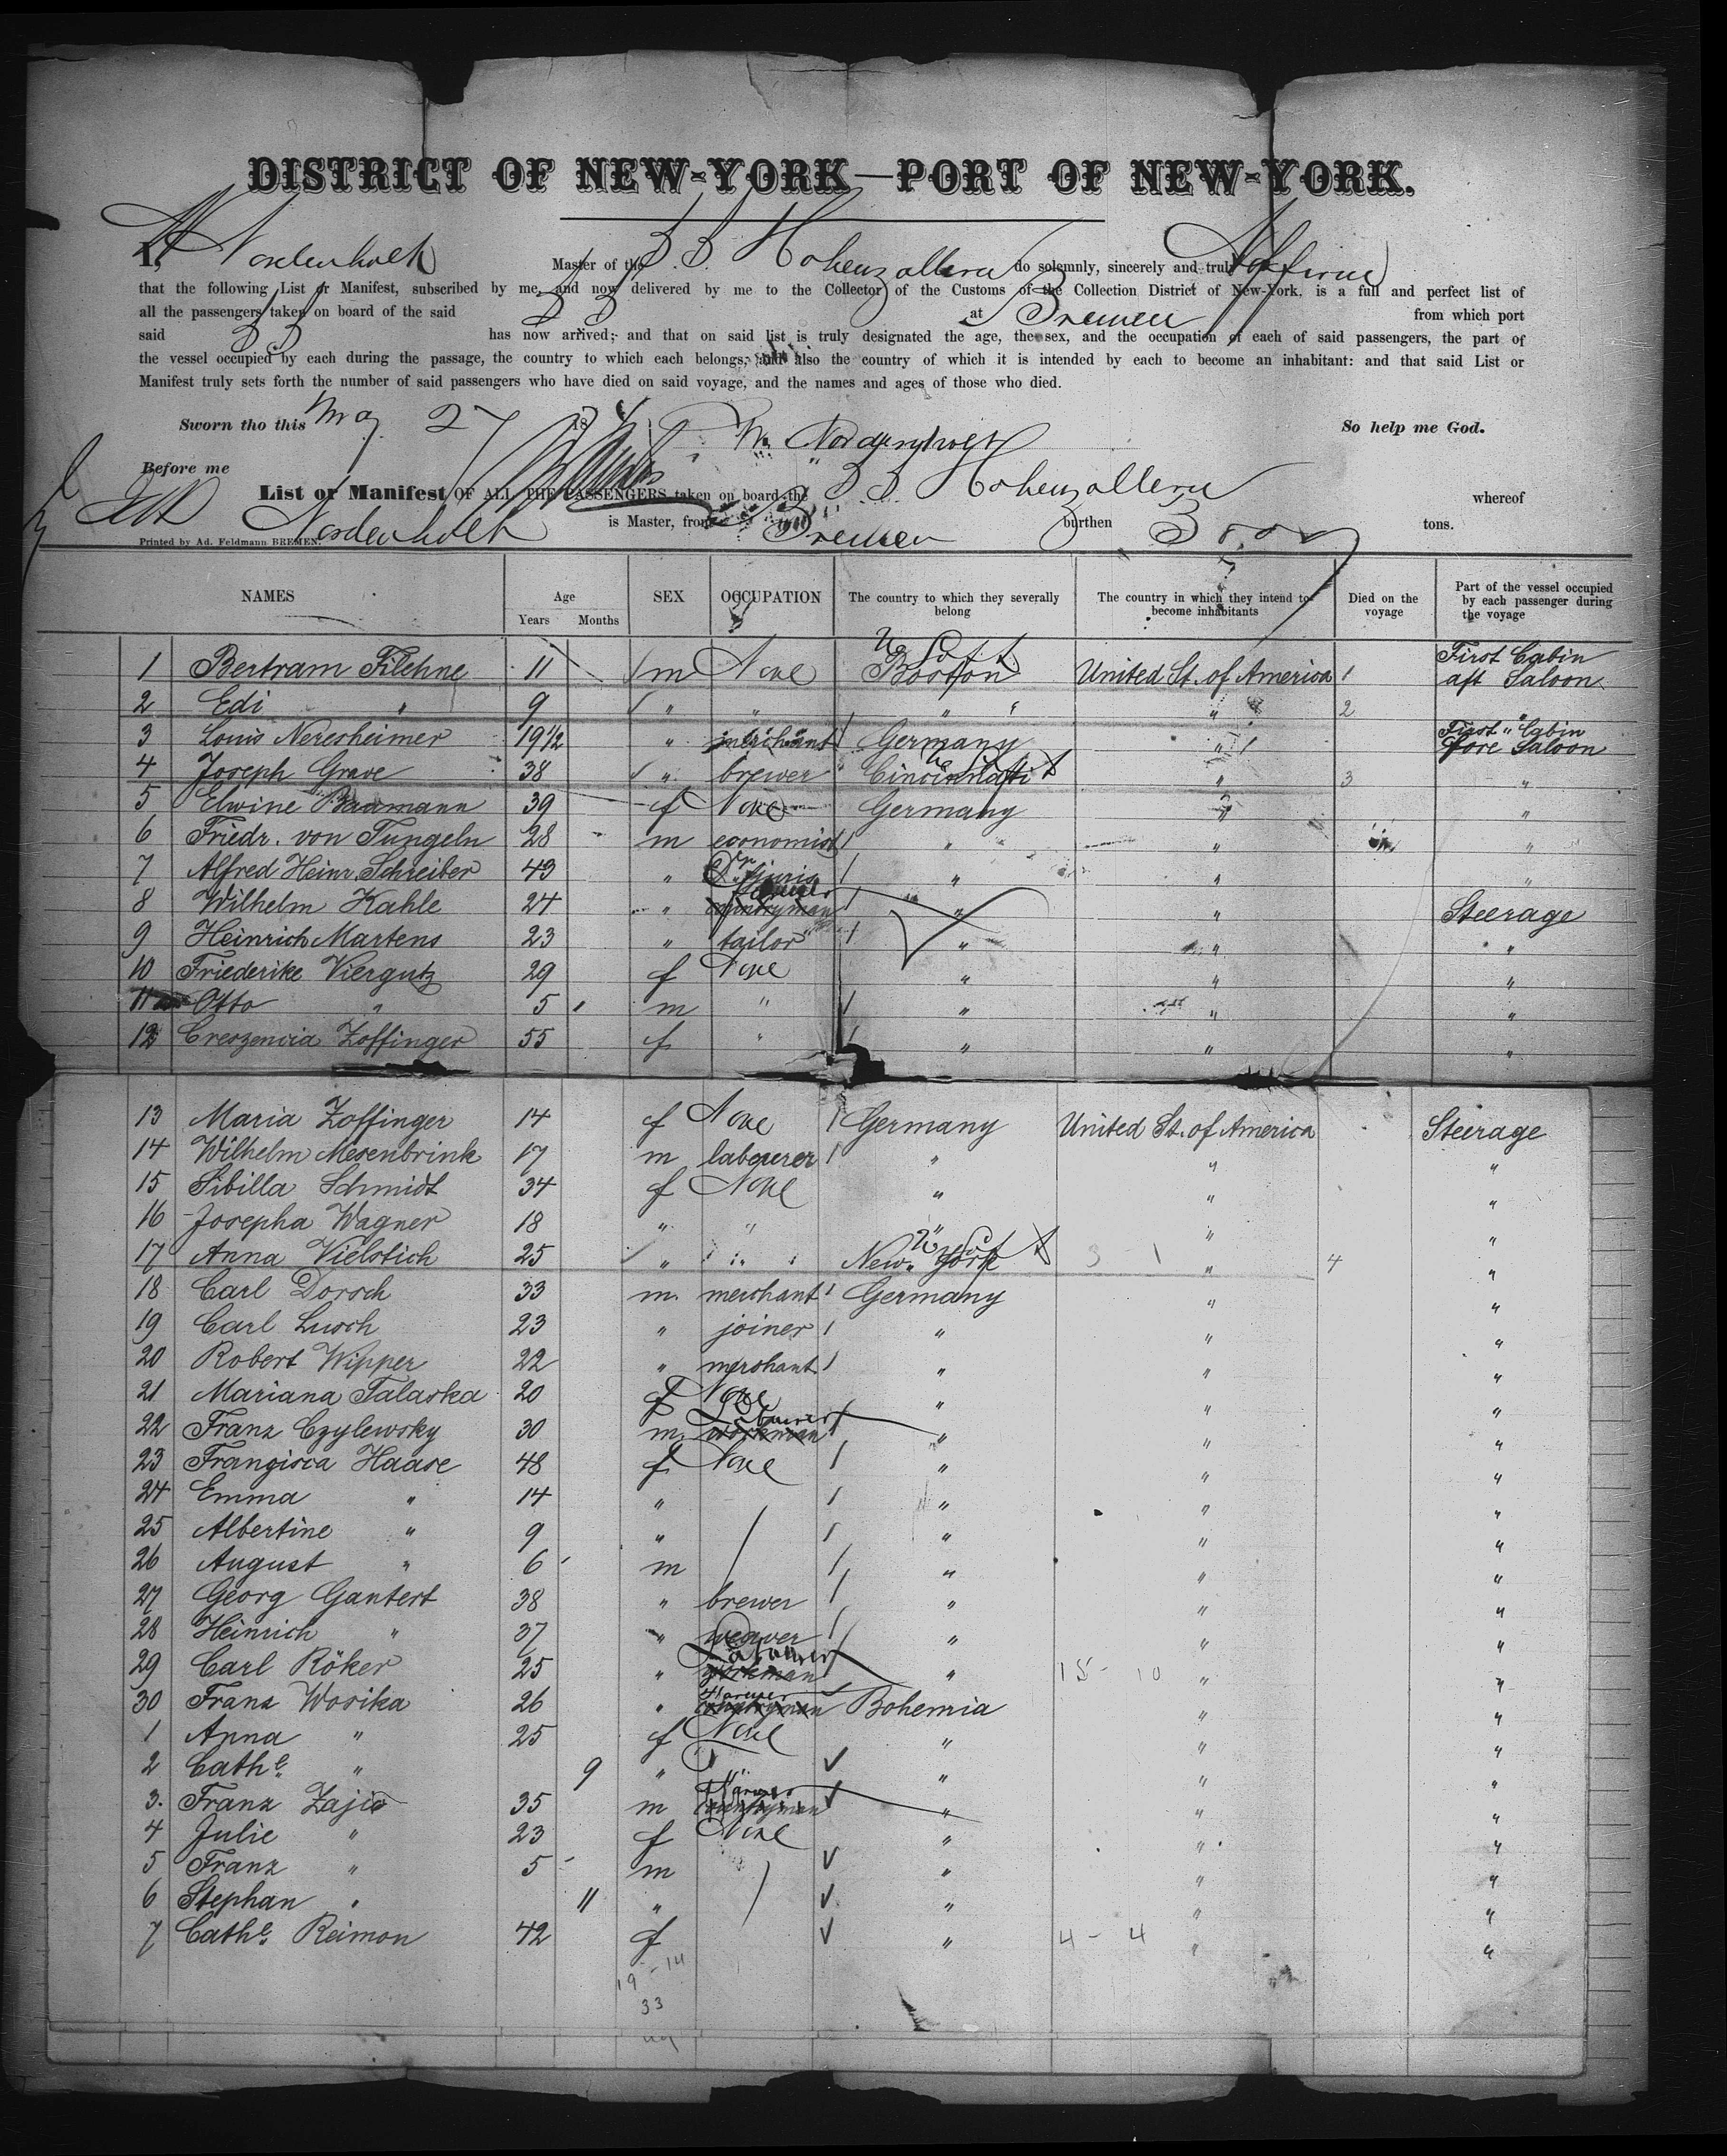 DISTRICT OF NEW-YORK—PORT OF NEW-YORK.
I, Nordenholt Master of the S. S. Hohenzollern do solemnly, sincerely and truly Affirm
that the following List or Manifest, subscribed by me, and now delivered by me to the Collector of the Customs of the Collection District of New-York, is a full and perfect list of
all the passengers taken on board of the said S S at Bremen from which port
said S S has now arrived; and that on said list is truly designated the age, the sex, and the occupation of each of said passengers, the part of
the vessel occupied by each during the passage, the country to which each belongs, and also the country of which it is intended by each to become an inhabitant: and that said List or
Manifest truly sets forth the number of said passengers who have died on said voyage, and the names and ages of those who died.
Sworn tho this May 27 18 So help me God.
Before me
List or Manifest OF ALL THE PASSENGERS taken on board the S S Hohenzollern whereof
Nordenholt is Master, from Bremen burthen tons.
Printed by Ad. Feldmann BREMEN.
NAMES Age Years Months SEX OCCUPATION The country to which they severally belong The country in which they intend to become inhabitants Died on the voyage Part of the vessel occupied by each passenger during the voyage
1 Bertram Filehne 11 m None Boston United St. of America 1 First Cabin aft Saloon
2 Edi " 9 " " " " 2 "
3 Louis Neresheimer 19½ " merchant Germany " First Cabin fore Saloon
4 Joseph Grave 38 " brewer Cincinnati " 3 "
5 Elwine Baumann 39 f None Germany " "
6 Friedr. von Tungeln 28 m economist " " "
7 Alfred Heinr. Schreiber 43 " Dr. juris " " "
8 Wilhelm Kahle 24 " farmer countryman " " Steerage
9 Heinrich Martens 23 " tailor " " "
10 Friederike Viergutz 29 f None " " "
11 Otto " 5 m " " " "
12 Creszencia Zoffinger 55 f " " " "
13 Maria Zoffinger 14 f None Germany United St. of America Steerage
14 Wilhelm Mesenbrink 17 m labourer " " "
15 Sibilla Schmidt 34 f None " " "
16 Josepha Wagner 18 " " " " "
17 Anna Vielstich 25 " " New York 3 1 " 4 "
18 Carl Dorsch 33 m. merchant Germany " "
19 Carl Lusch 23 " joiner " " "
20 Robert Wipper 22 " merchant " " "
21 Mariana Talaska 20 f None " " "
22 Franz Czylewsky 30 m. Labourer workman " " "
23 Franzisca Haase 48 f None " " "
24 Emma " 14 " " " "
25 Albertine " 9 " " " "
26 August " 6 m " " "
27 Georg Gantert 38 " brewer " " "
28 Heinrich " 37 " weaver " " "
29 Carl Röker 25 " Labourer workman " 15 - 10 " "
30 Franz Wosika 26 " Farmer countryman Bohemia " "
1 Anna " 25 f None " " "
2 Cathe. " 9 " " " " "
3. Franz Zajic 35 m Farmer countryman " " "
4 Julie " 23 f None " " "
5 Franz " 5 m " " "
6 Stephan " 11 " " " "
7 Cathe. Reimon 42 f " 4 - 4 " "
19 - 14
33